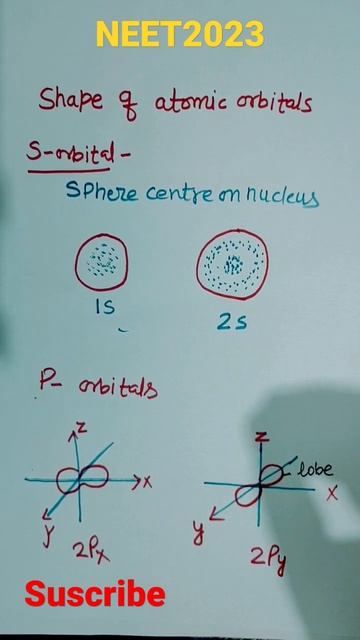 NEET2023
Shape of atomic orbitals
S-orbital-
Sphere centre on nucleus
1S
2S
P- orbitals
Z
X
y
2Px
Z
lobe
X
y
2Py
Suscribe